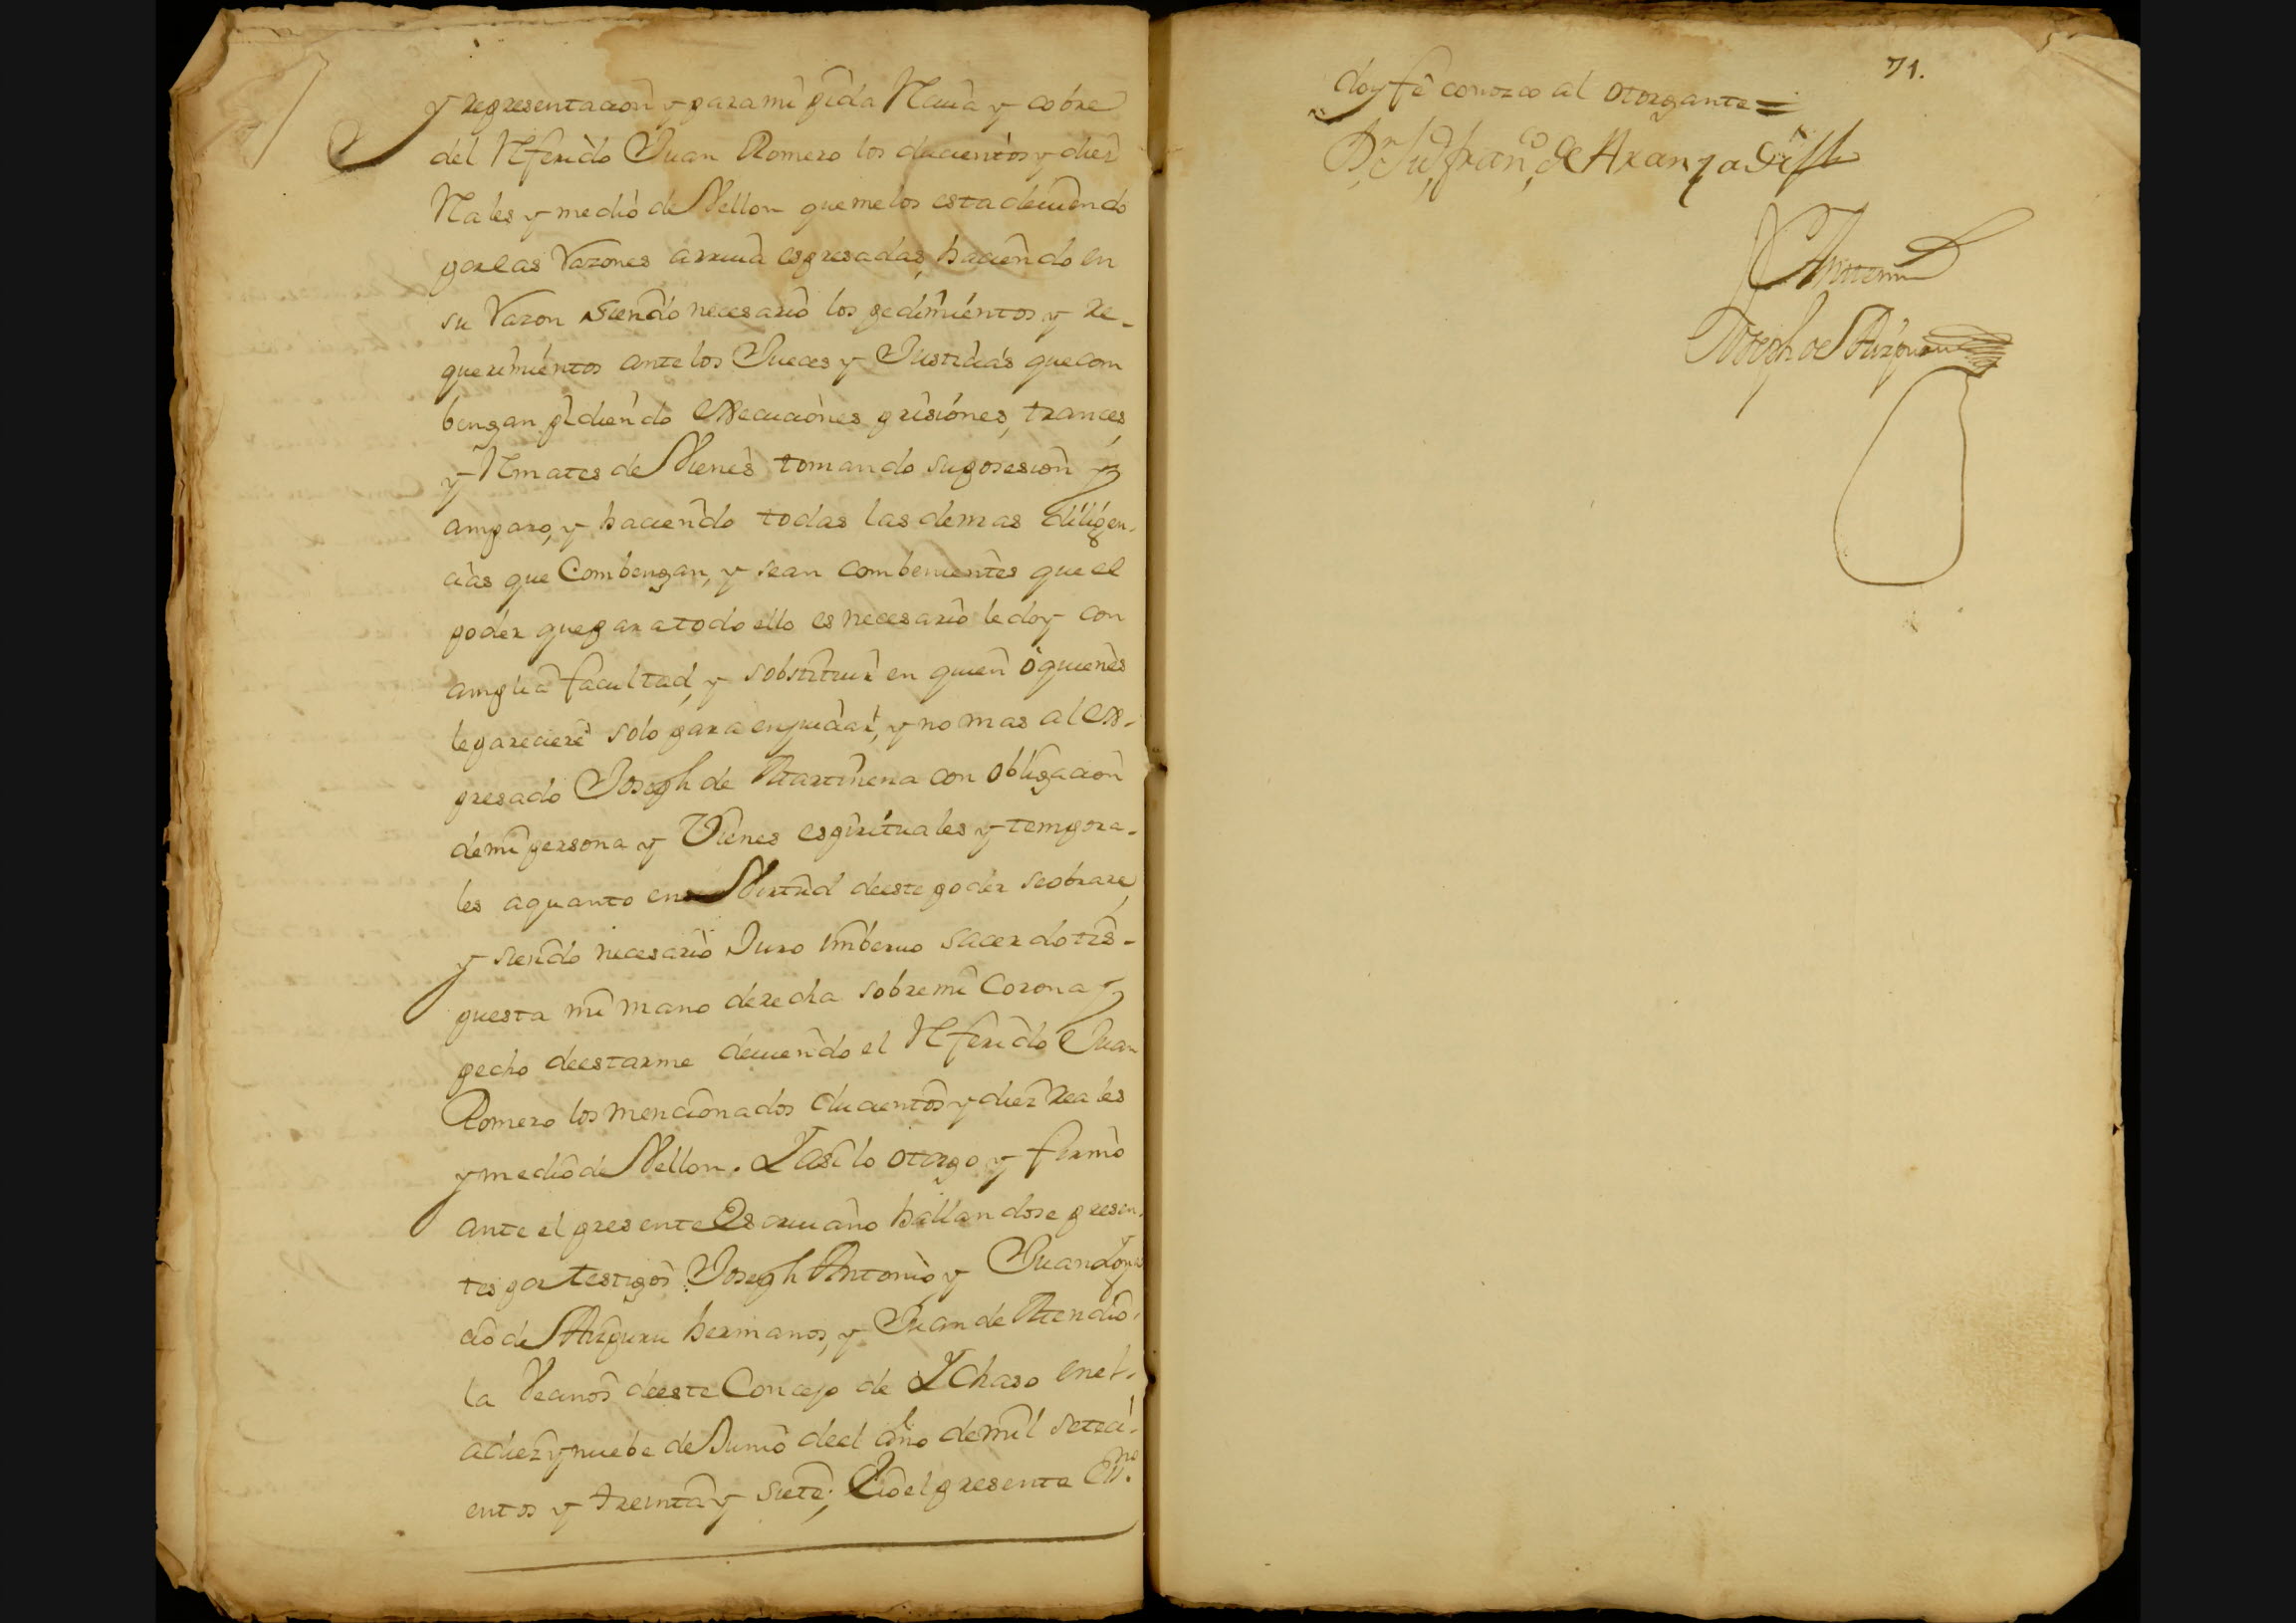 y representacion y para mi pida Reciua y cobre
del Referido Juan Romero los ducientos y diez
Reales y medio de Vellon que me los esta deuiendo
por las Razones arriua espresadas, haciendo en
su Razon siendo necesario los pedimientos y re-
querimientos ante los Jueces y Justicias que com
bengan pidiendo execuciones prisiones, trances,
y Remates de Vienes tomando su posesion y
amparo, y haciendo todas las demas diligen-
cias que Combengan, y sean combenientes que el
poder que para todo ello es necesario le doy con
amplia facultad, y sobstituir en quien o quienes
le pareciere solo para enjuiciar, y no mas al ex-
presado Joseph de Martinena con obligacion
de mi persona y Vienes espirituales y tempora-
les a quanto en Virtud de este poder se obrare,
y siendo necesario Juro in beruo sacerdotis-
puesta mi mano derecha sobre mi Corona y
pecho de estarme deuiendo el Referido Juan
Romero los mencionados ducientos y diez reales
y medio de Vellon. Y asi lo otorgo y firmo
ante el presente Escriuano hallandose presen-
tes por testigos Joseph Antonio y Juan Ygna
cio de Aizpuru hermanos, y Juan de Mendio-
la Vecinos de este Concejo de Ychaso en el-
a diez y nuebe de Junio de el año de mil seteci-
entos y treinta y siete; E io el presente Essno.
71.
doy fe conozco al otorgante =
Dn. Ju. Franco. de Aranzadi
Ante mi
Joseph de Aizpuru